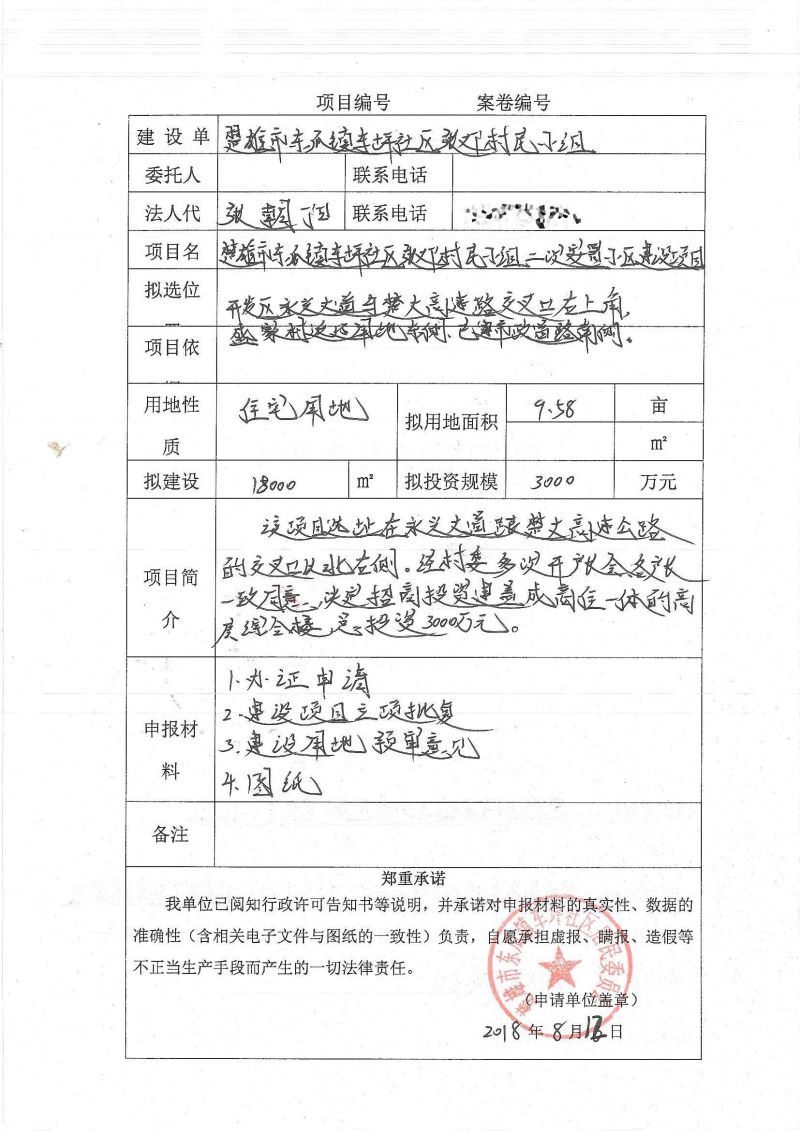 项目编号 案卷编号
建设单 楚雄市东瓜镇车坪社区 村民小组
委托人 联系电话
法人代 联系电话
项目名 楚雄市东瓜镇车坪社区 村民小组二次安置小区建设项目
拟选位 开发区永兴大道与楚大高速路交叉口左上角,
置 盛家村返还用地东侧、已建市政道路南侧。
项目依
用地性质 住宅用地 拟用地面积 9.58 亩
m²
拟建设 18000 m² 拟投资规模 3000 万元
项目简介 该项目选址在永兴大道跟楚大高速公路
的交叉口以北左侧。经村委多次开户长会,各户长
一致同意、决定招商投资建盖成商住一体的高
度综合楼,总投资3000万元。
申报材料 1.办证申请
2.建设项目立项批复
3.建设用地预审意见
4.图纸
备注
郑重承诺
我单位已阅知行政许可告知书等说明，并承诺对申报材料的真实性、数据的
准确性（含相关电子文件与图纸的一致性）负责，自愿承担虚报、瞒报、造假等
不正当生产手段而产生的一切法律责任。
楚雄市东瓜镇车坪社区居民委员会
（申请单位盖章）
2018年8月 日